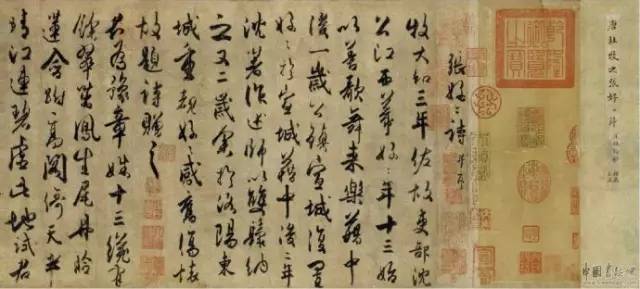 唐杜牧之張好好詩
張好〻詩 并序
牧大和三年佐故吏部沈
公江西幕好〻年十三始
以善歌舞來樂籍中
後一歲公鎮宣城復置
好〻於宣城籍中後二年
沈著作述師以雙鬟納
之又二歲余於洛陽東
城重覩好〻感舊傷懷
故題詩贈之
君為豫章姝十三纔有
餘翠茁鳳生尾丹臉
蓮含跗高閣倚天半
晴江連碧虛此地試君